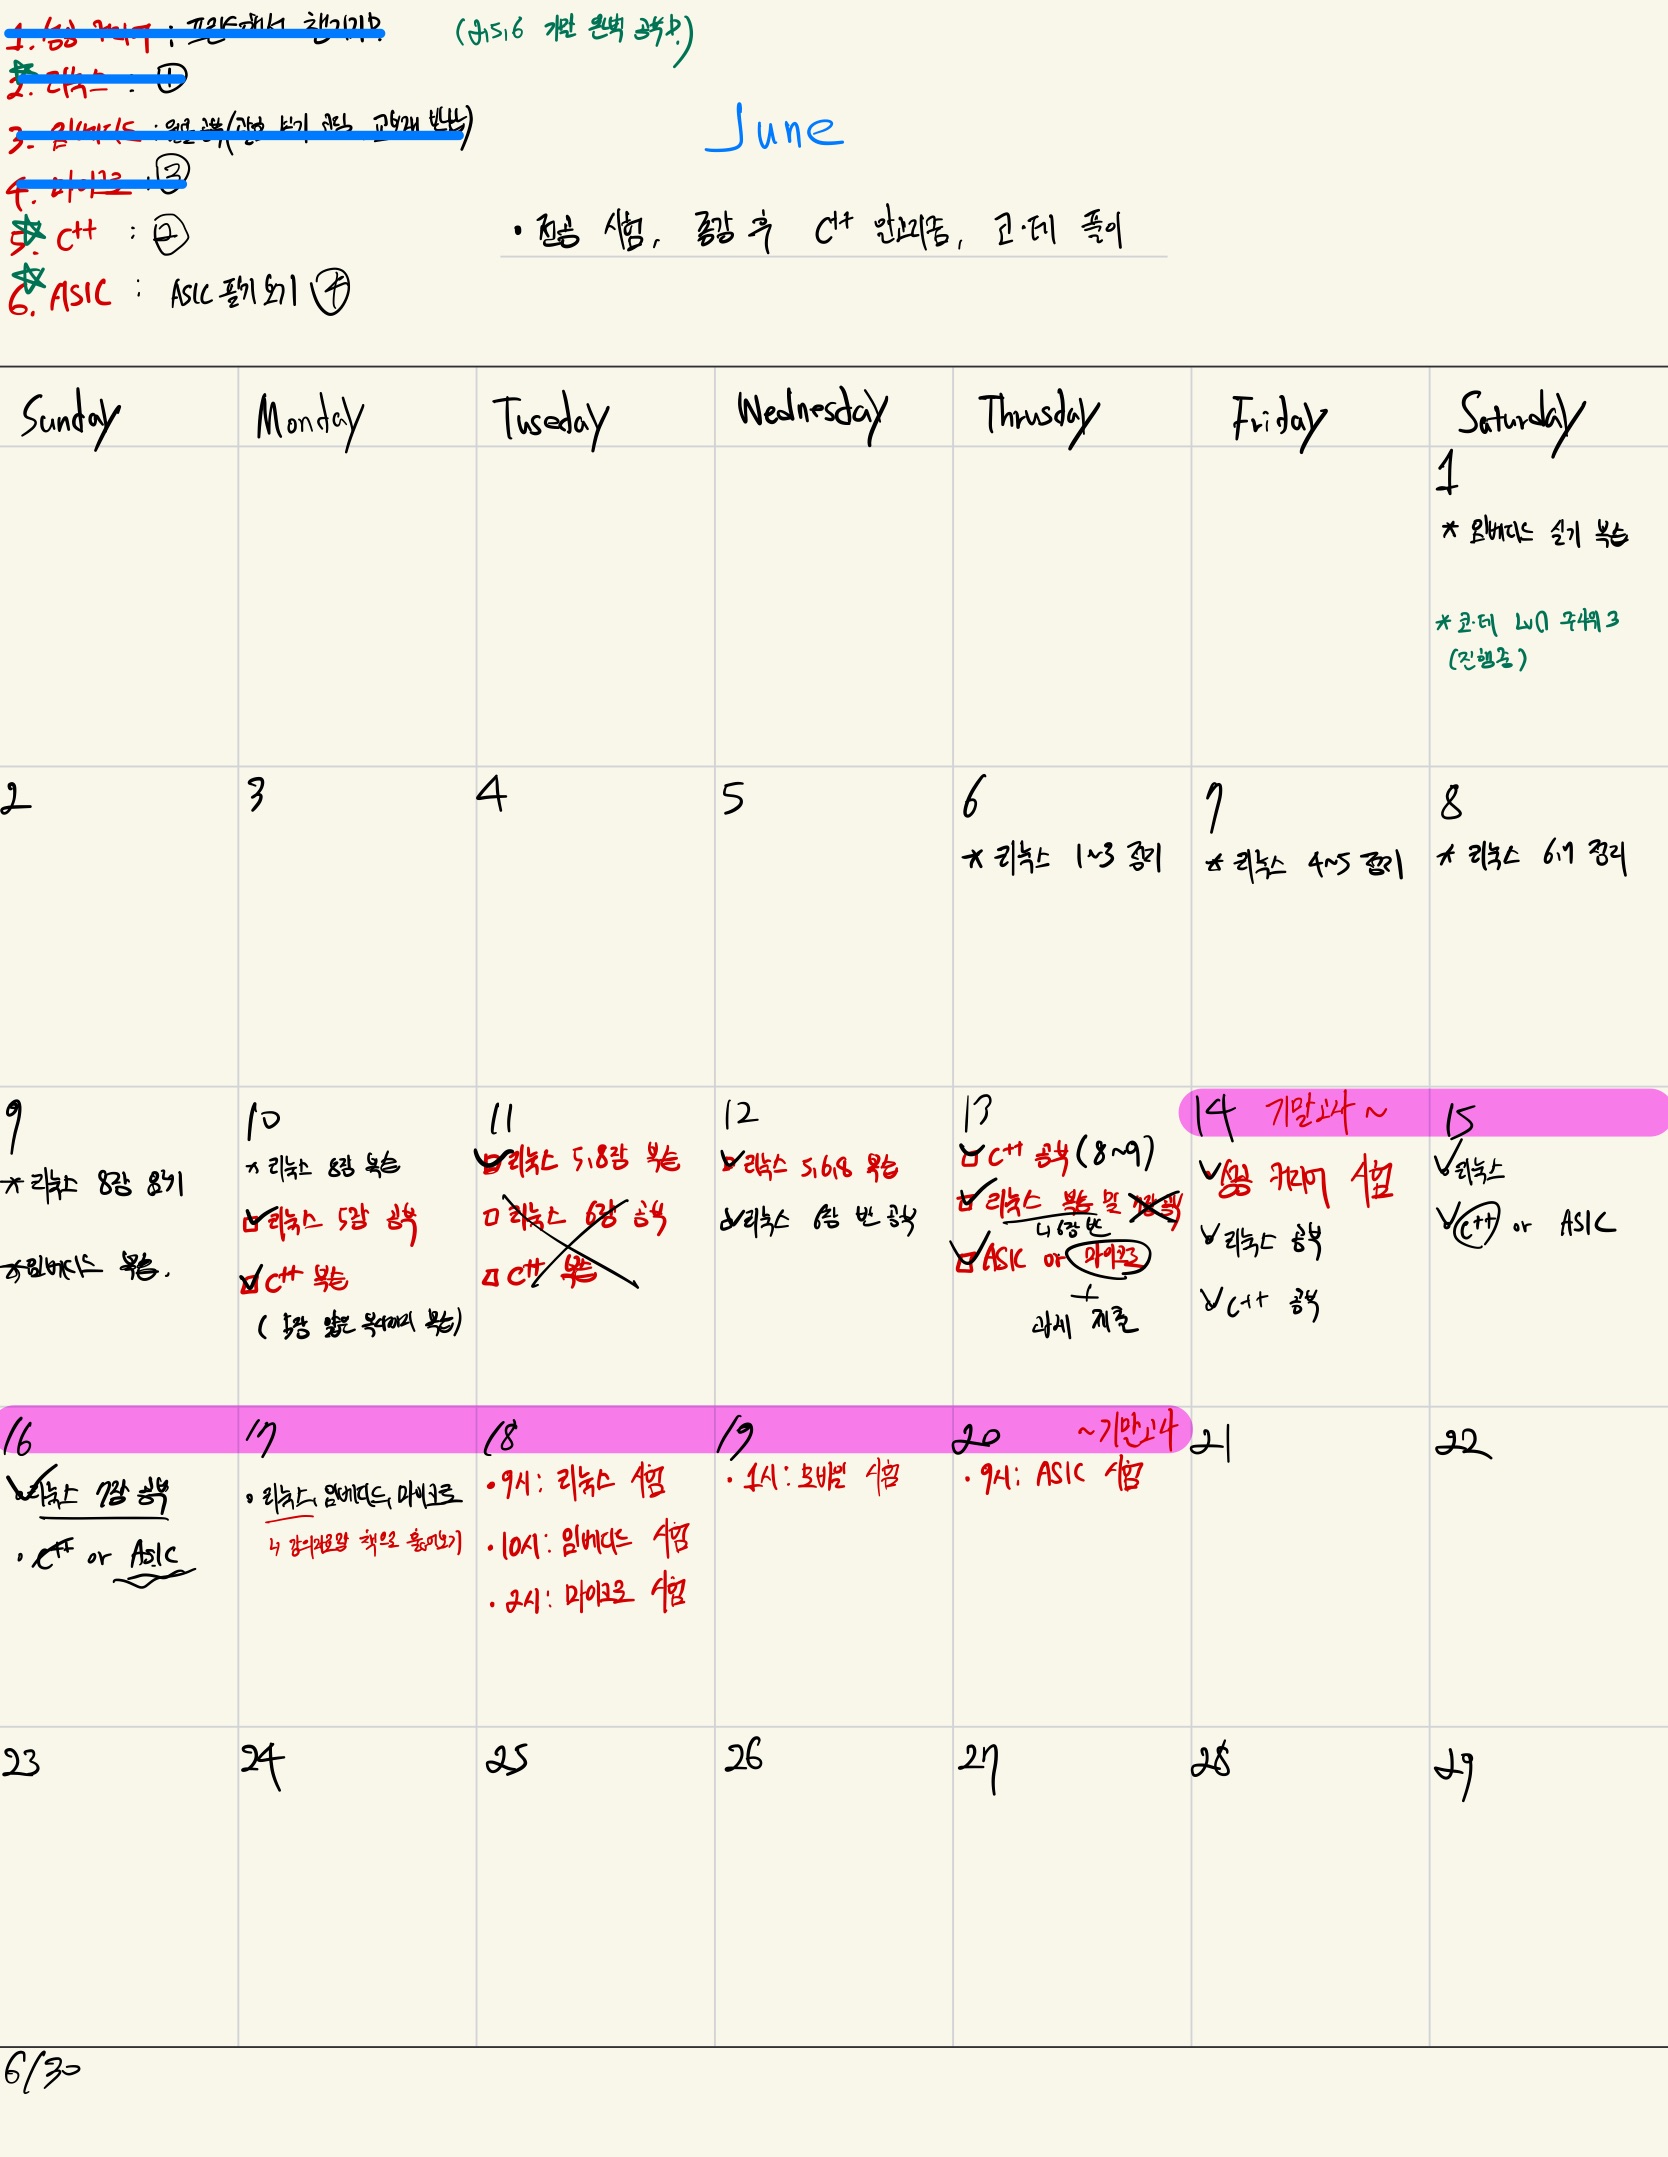 1. 성공 커리어 : 프린트에서 챙기기?
(2,5,6 기말 완벽 공부!)
2. 리눅스 : ①
3. 임베디드 :
4. 마이크로 : ③
5. C++ : ②
6. ASIC : ASIC 필기 보기 ④
June
• 전공 시험, 종강 후 C++ 알고리즘, 코·테 풀이
Sunday Monday Tuseday Wednesday Thrusday Friday Saturday
1
* 임베디드 실기 복습
* 코·테 Lv0 주사위 3
(진행중)
2 3 4 5 6 7 8
* 리눅스 1~3 정리
* 리눅스 4~5 정리
* 리눅스 6,7 정리
9
* 리눅스 8장 요기
* 임베디드 복습.
10
* 리눅스 8장 복습
리눅스 5장 공부
C++ 복습
( 얕은 복사까지 복습)
11
리눅스 5,8장 복습
리눅스 6장 공부
C++ 복습
12
리눅스 5,6,8 복습
리눅스 6장 반 공부
13
C++ 공부 (8~9)
리눅스 복습 및
↳ 6장 반
ASIC or 마이크로
+
과제 제출
14 기말고사 ~
성공 커리어 시험
리눅스 공부
C++ 공부
15
리눅스
C++ or ASIC
16
리눅스 7장 공부
• C++ or ASIC
17
• 리눅스, 임베디드, 마이크로
↳ 강의자료랑 책으로 훑어보기
18
• 9시: 리눅스 시험
• 10시: 임베디드 시험
• 2시: 마이크로 시험
19
• 1시: 모바일 시험
20 ~기말고사
• 9시: ASIC 시험
21 22
23 24 25 26 27 28 29
6/30